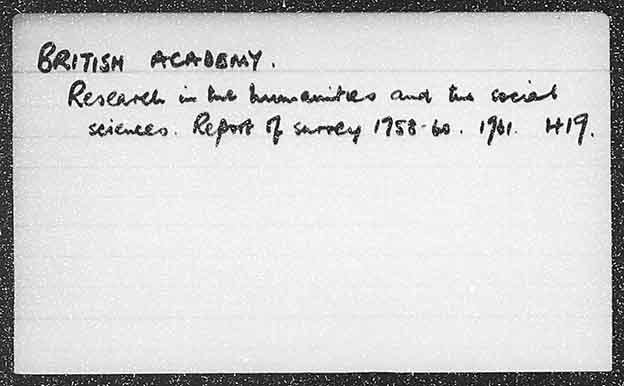 BRITISH ACADEMY.
Research in the humanities and the social
sciences. Report of survey 1958-60. 1961. H19.